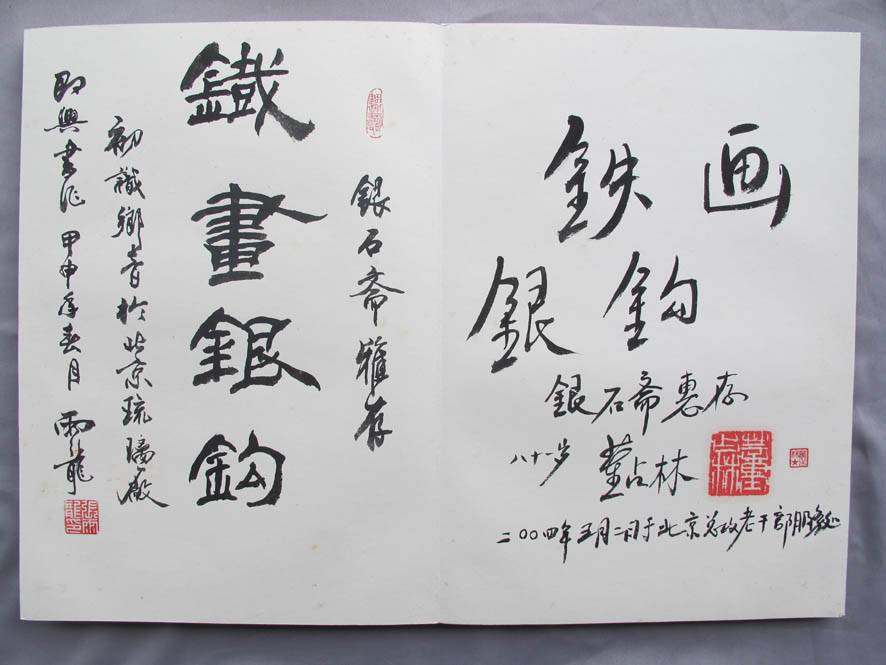 鉄画
銀鈎
銀石斋惠存
八十一岁 董占林
二〇〇四年五月二日于北京总政老干部
銀石斋雅存
鐵畫銀鈎
初識鄉音於北京琉璃廠
即興書作甲申年春月雨龍